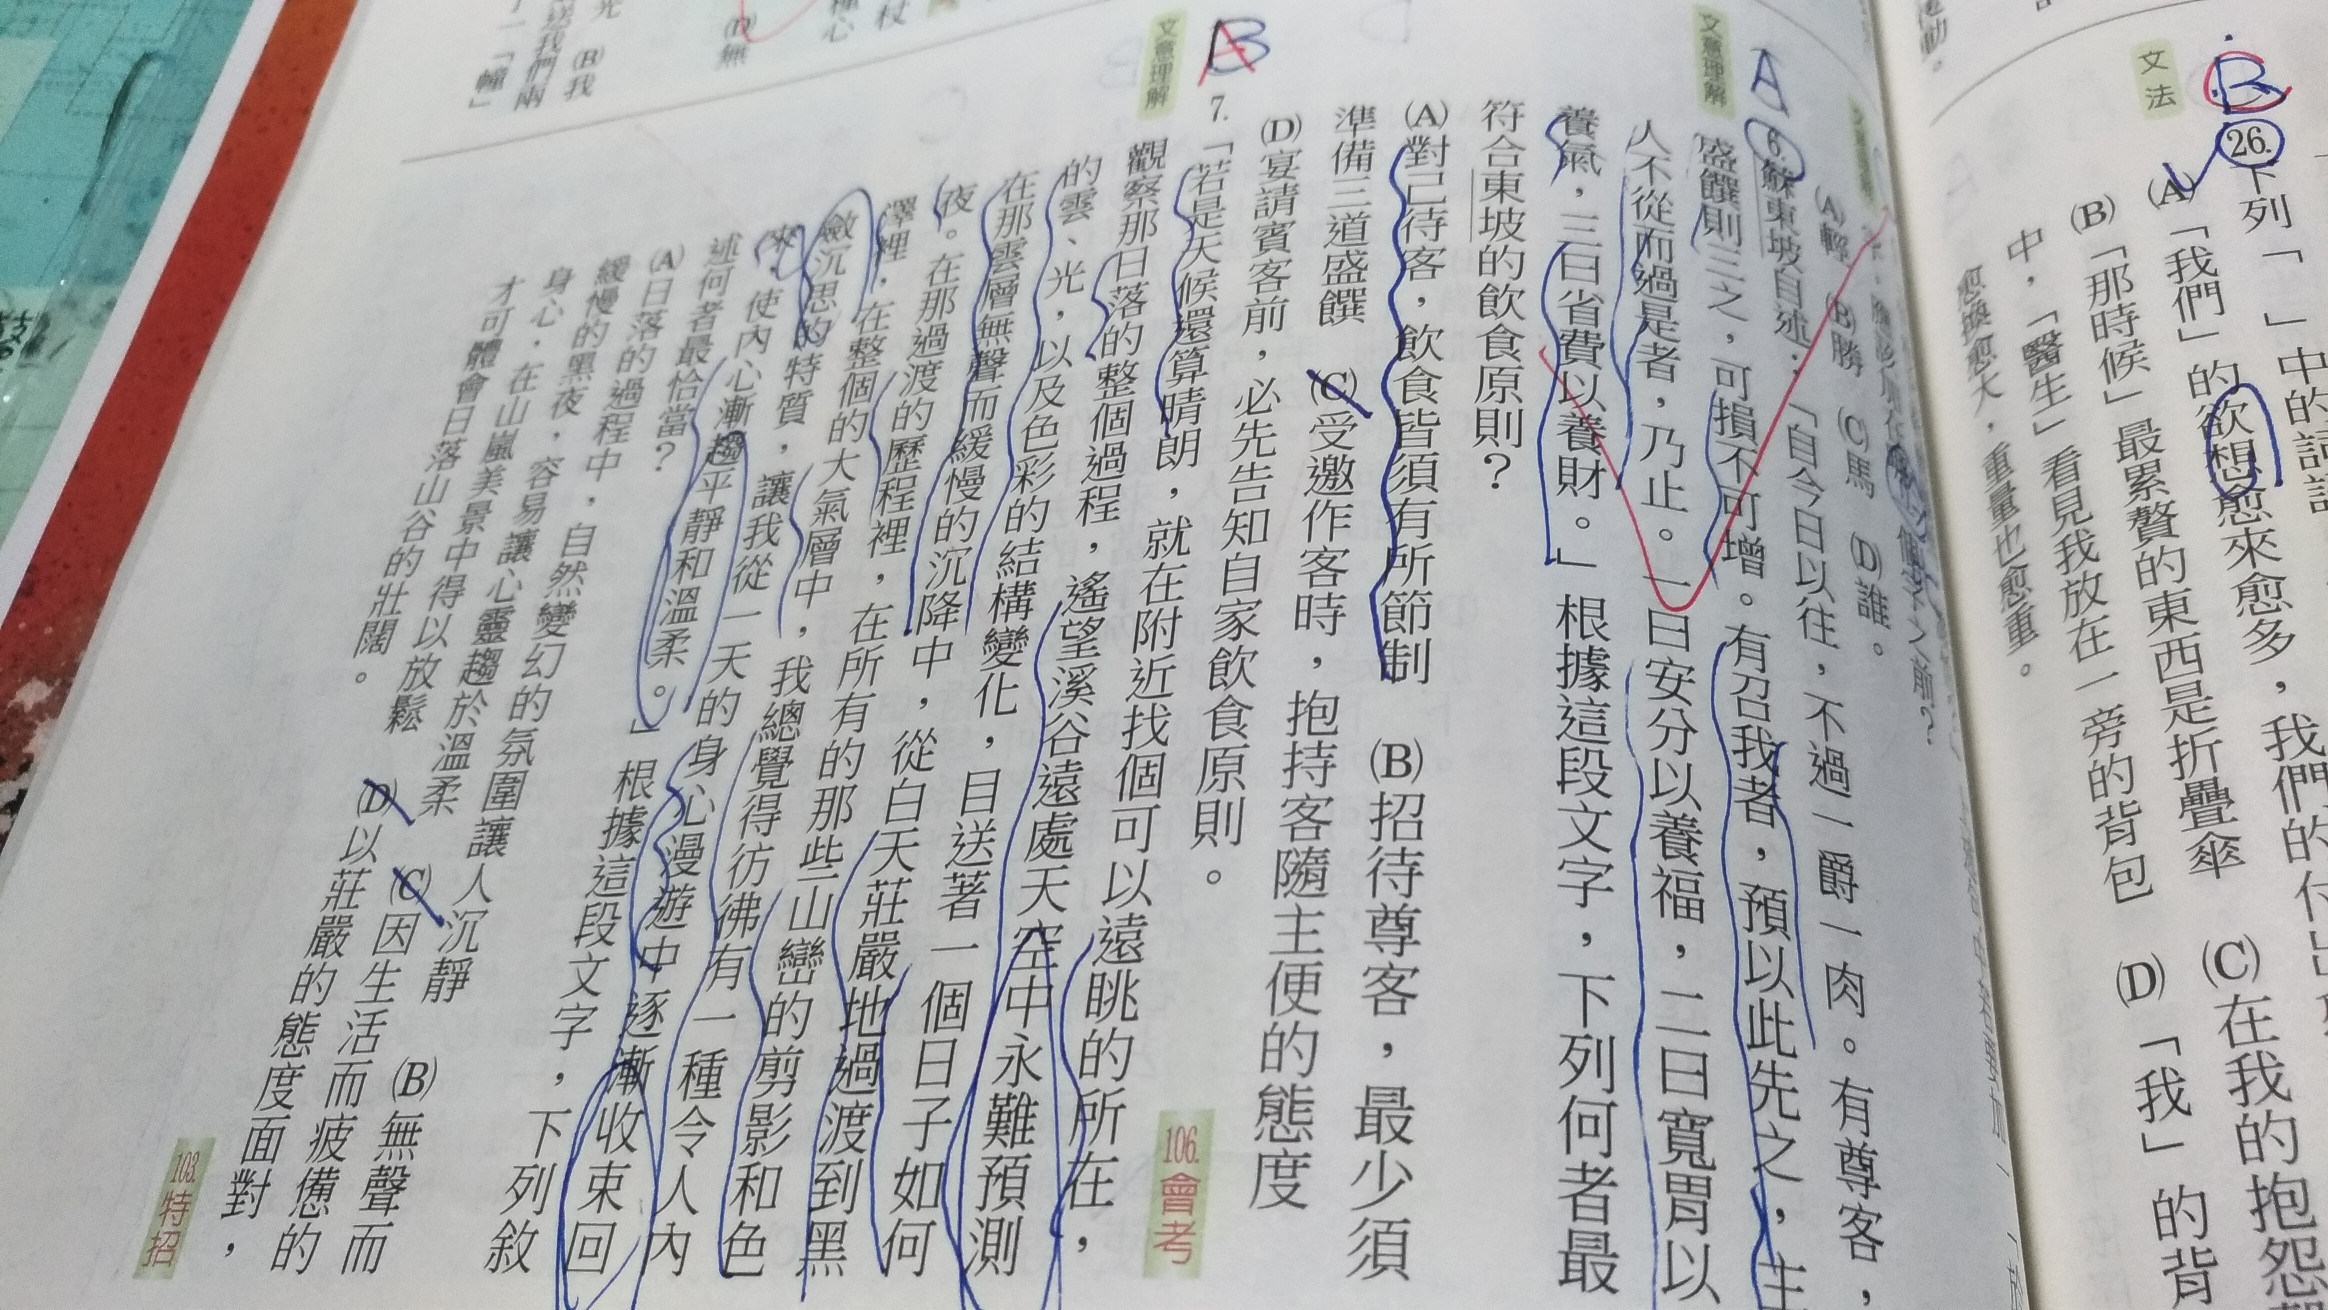 中,「醫生」看見我放在一旁的背包 (D)「我」的背
愈換愈大,重量也愈重。
文法
B
26.
(A)「我們」的欲想愈來愈多,我們的付出
(B)「那時候」最累贅的東西是折疊傘 (C)在我的抱怨
(A) (B)勝 (C)馬 (D)誰。
文意理解
A
6.蘇東坡自述:「自今日以往,不過一爵一肉。有尊客,
盛饌則三之,可損不可增。有召我者,預以此先之,主
人不從而過是者,乃止。一曰安分以養福,二曰寬胃以
養氣,三曰省費以養財。」根據這段文字,下列何者最
符合東坡的飲食原則?
(A)對己待客,飲食皆須有所節制 (B)招待尊客,最少須
準備三道盛饌 (C)受邀作客時,抱持客隨主便的態度
(D)宴請賓客前,必先告知自家飲食原則。
106.會考
文意理解
B
7.「若是天候還算晴朗,就在附近找個可以遠眺的所在,
觀察那日落的整個過程,遙望溪谷遠處天空中永難預測
的雲、光,以及色彩的結構變化,目送著一個日子如何
在那雲層無聲而緩慢的沉降中,從白天莊嚴地過渡到黑
夜。在那過渡的歷程裡,在所有的那些山巒的剪影和色
澤裡,在整個的大氣層中,我總覺得彷彿有一種令人內
斂沉思的特質,讓我從一天的身心漫遊中逐漸收束回
來,使內心漸趨平靜和溫柔。」根據這段文字,下列敘
述何者最恰當?
(A)日落的過程中,自然變幻的氛圍讓人沉靜 (B)無聲而
緩慢的黑夜,容易讓心靈趨於溫柔 (C)因生活而疲憊的
身心,在山嵐美景中得以放鬆 (D)以莊嚴的態度面對,
才可體會日落山谷的壯闊。
103.特招